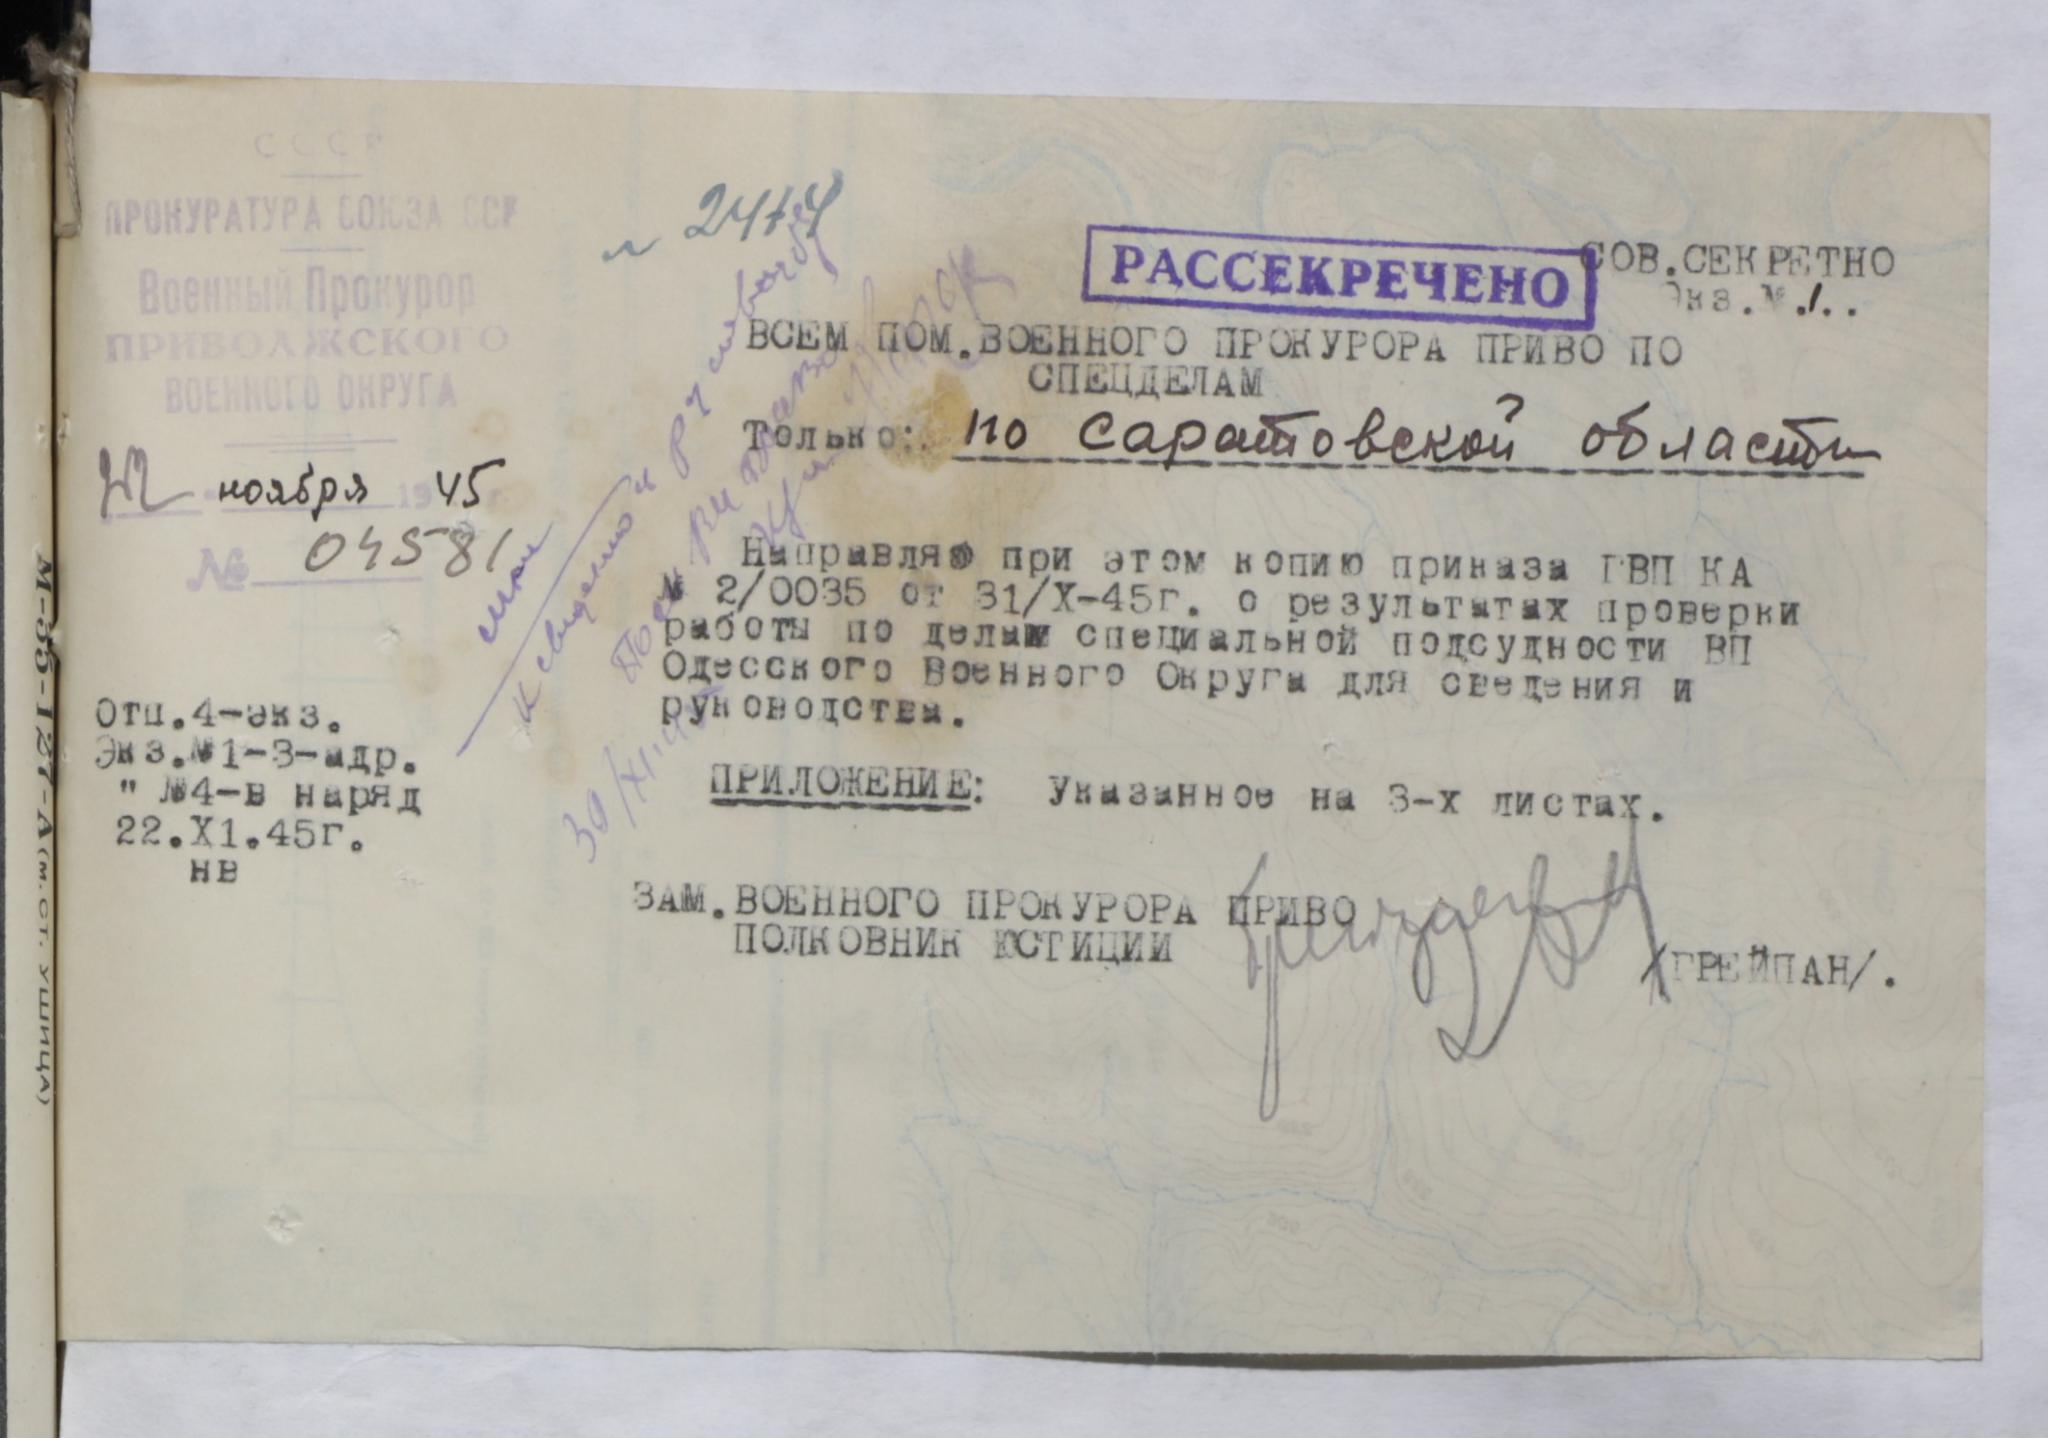 СССР
ПРОКУРАТУРА СОЮЗА ССР
Военный Прокурор
ПРИВОЛЖСКОГО
ВОЕННОГО ОКРУГА
22 ноября 1945 г.
№ 04581
Отп.4-экз.
Экз.№1-3-адр.
" №4-в наряд
22.X1.45г.
нв
РАССЕКРЕЧЕНО
СОВ.СЕКРЕТНО
Экз.№.1..
ВСЕМ ПОМ.ВОЕННОГО ПРОКУРОРА ПРИВО ПО
СПЕЦДЕЛАМ
Только: по Саратовской области
Направляю при этом копию приказа ГВП КА
№ 2/0035 от 31/X-45г. о результатах проверки
работы по делам специальной подсудности ВП
Одесского Военного Округа для сведения и
руководства.
ПРИЛОЖЕНИЕ: Указанное на 3-х листах.
ЗАМ.ВОЕННОГО ПРОКУРОРА ПРИВО
ПОЛКОВНИК ЮСТИЦИИ
/ГРЕЙПАН/.
К сведению и руководству
30/XI-45
М-35-127-А (м. ст. УШИЦА)